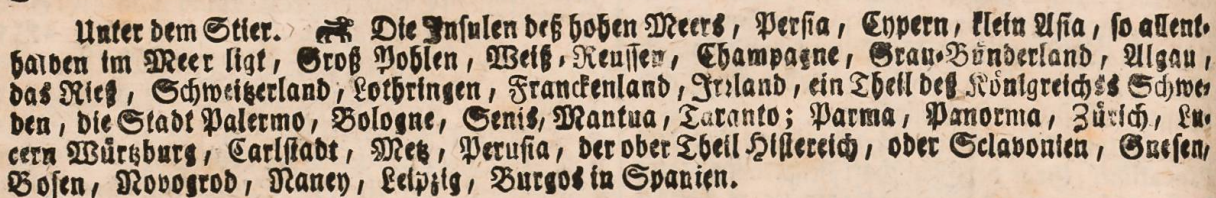 Unter dem Stier. Die Insulen deß hohen Meers, Persia, Cypern, klein Asia, so allent-
halben im Meer ligt, Groß Pohlen, Weiß-Reussen, Champagne, Grau-Bünderland, Algau,
das Rieß, Schweitzerland, Lothringen, Franckenland, Irrland, ein Theil deß Königreiches Schwe-
den, die Stadt Palermo, Bologne, Senis, Mantua, Taranto; Parma, Panorma, Zürich, Lu-
cern Würtzburg, Carlstadt, Metz, Perusia, der ober Theil Histereich, oder Sclavonien, Gnesen,
Bosen, Novogrod, Nancy, Leipzig, Burgos in Spanien.